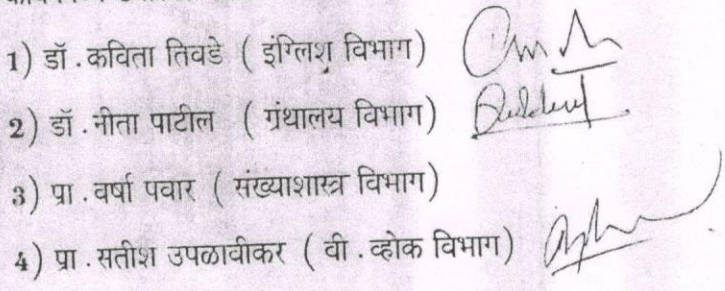 1) डॉ .कविता तिवडे ( इंग्लिश विभाग)
2) डॉ .नीता पाटील ( ग्रंथालय विभाग)
3) प्रा .वर्षा पवार ( संख्याशास्त्र विभाग)
4) प्रा .सतीश उपळावीकर ( वी .व्होक विभाग)